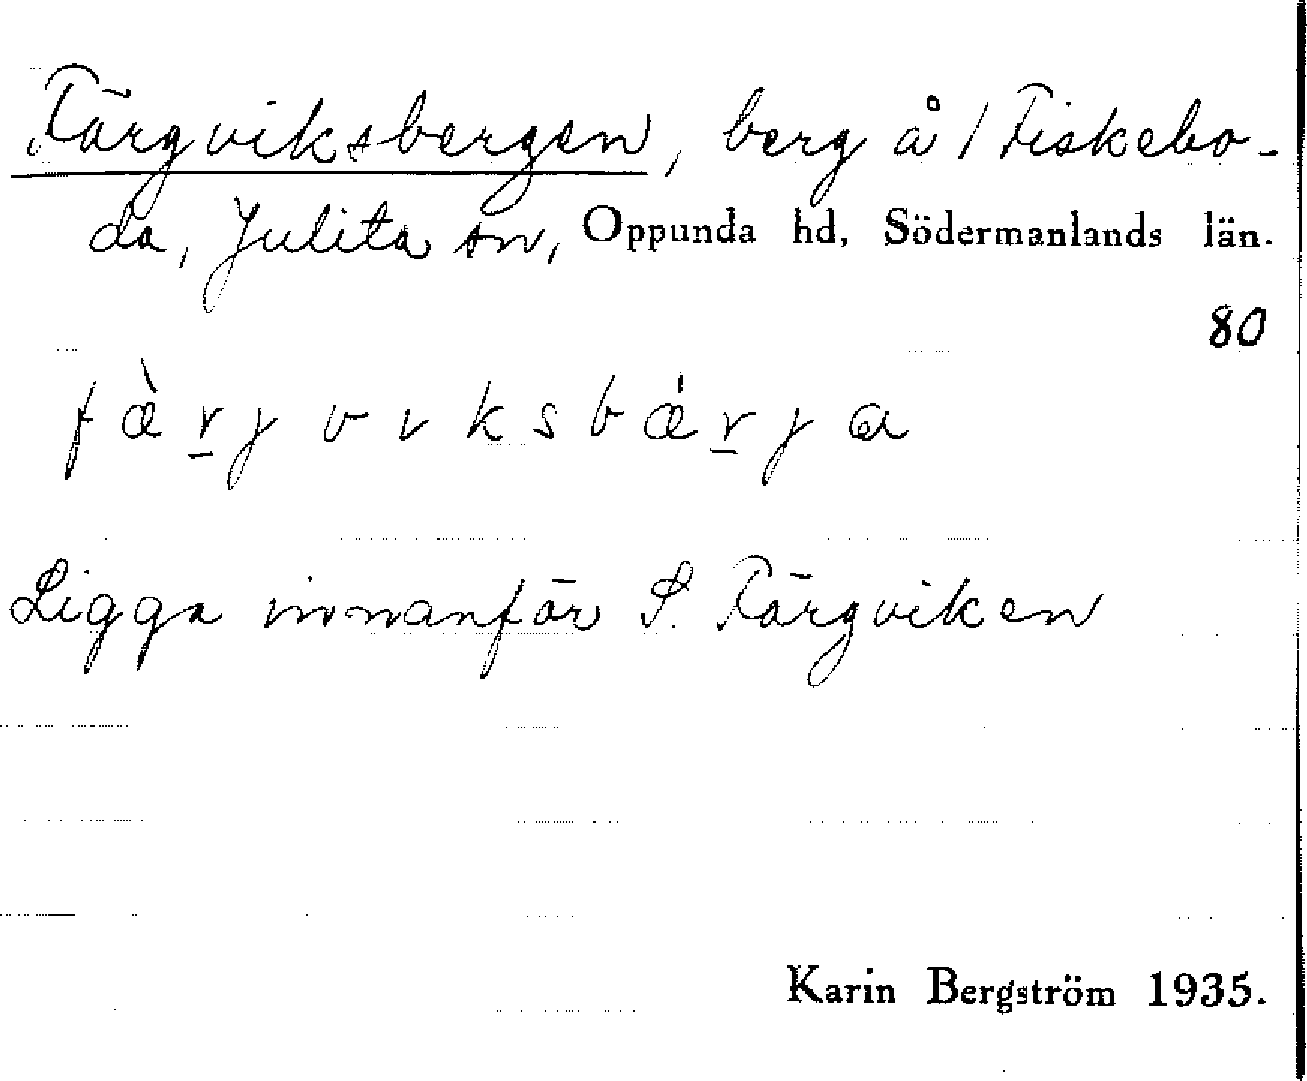 Färgviksbergen, berg å 1 Fiskebo-
da, Julita sn, Oppunda hd, Södermanlands län.
80
fæ̀r̲jvıksbǽr̲ja
Ligga innanför S. Färgviken
Karin Bergström 1935.